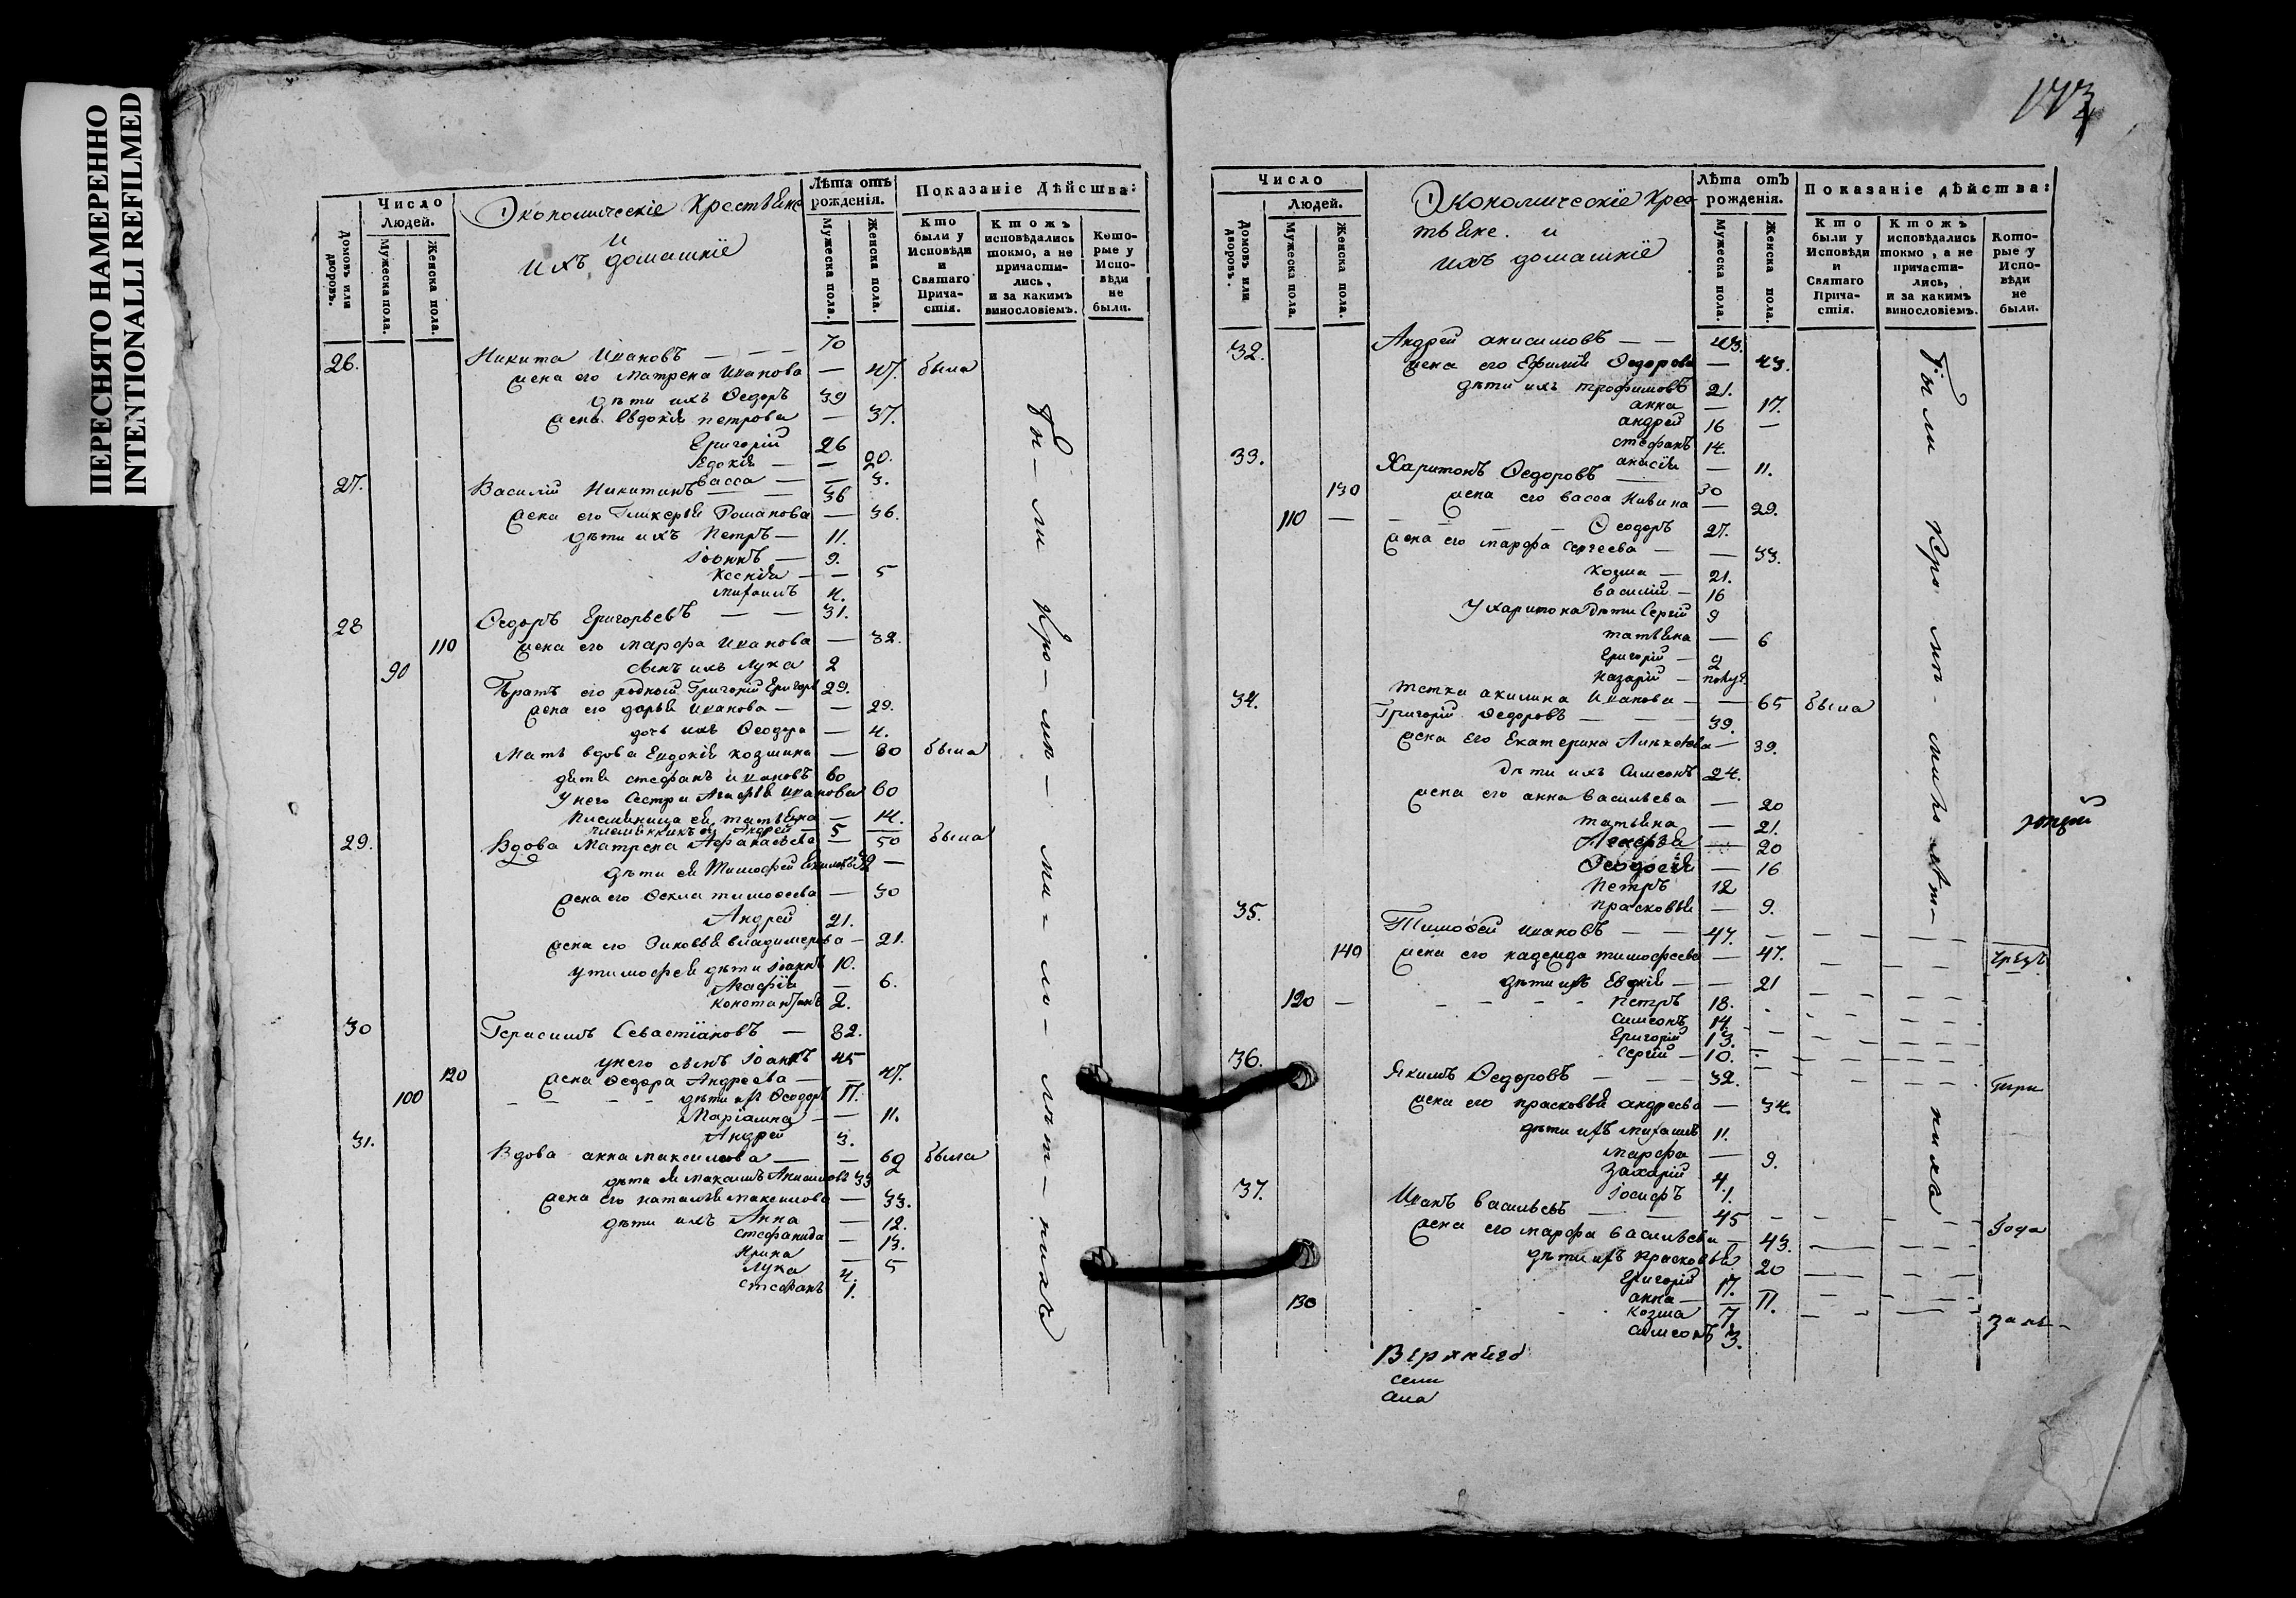 ПЕРЕСНЯТО НАМЕРЕННО
INTENTIONALLI REFILMED
Число
Людей.
Домовъ или дворовъ.
Мужеска пола.
Женска пола.
Экономическіе Крестьяне
и
ихъ домашніе
Лѣта отъ рожденія.
Мужеска пола.
Женска пола.
Показаніе Дѣйства:
Кто были у Исповѣди и Святаго Прича-стія.
Ктожъ исповѣдались токмо, а не причасти-лись, и за какимъ винословіемъ.
Кото-рые у Испо-вѣди не были.
26. Никита Ивановъ — — — 70
жена его Матрена Иванова — 47. была
дѣти ихъ Ѳедоръ 39
жена Евдокія петрова — 37.
Григорій 26
— — 20.
васса — — 3.
27. Василій Никитинъ — — 36
жена его Гликерья Романова — 36.
дѣти ихъ Петръ — 11.
Іоаннъ — 9.
Ксенія — — 5
михаилъ 4.
28 Ѳедоръ Григорьевъ — — 31.
110 жена его марфа Иванова — 32.
90 сынъ ихъ Лука 2
Братъ его родный Григорій Григорь 29.
жена его дарья Иванова — — 29.
дочь ихъ Ѳеодора — 4.
Мать вдова Евдокія козмина — 80 была
дѣти стефанъ ивановъ 60
у него Сестра Агафья Иванова 60
племяница ей татьяна — 14.
племянникъ ей Андрей — 5
29. Вдова Матрена Афанасьева — 50 была
дѣти ея Тимофей
жена его Ѳекла тимоѳеева — 30
Андрей 21.
жена его Зиновья владимерова — 21.
у тимофея дѣти Іоаннъ 10.
Агафія — 6.
константинъ 2.
30 Герасимъ Севастіановъ — 82.
у него сынъ Іоаннъ 45
120 жена Ѳедора Андреева — — 47.
100 — — — — дѣти ихъ Ѳеодоръ 17.
Маріамна — — 11.
Андрей 3.
31. Вдова анна максимова — — 69 была
дѣти ея максимъ Анисимовъ 33
жена его наталья максимова — 33.
дѣти ихъ Анна — 12.
стефанида — 13.
Ирина — 5
лука 4.
стефанъ 1.
Бы — ли
173
Число
Людей.
Домовъ или дворовъ.
Мужеска пола.
Женска пола.
Экономическіе Крес-
тьяне. и
ихъ домашніе
Лѣта отъ рожденія.
Мужеска пола.
Женска пола.
Показаніе дѣйства:
Кто были у Исповѣди и Святаго Прича-стія.
Ктожъ исповѣдались токмо, а не причасти-лись, и за какимъ винословіемъ.
Кото-рые у Испо-вѣди не были.
32. Андрей анисимовъ — — 43.
жена его Ефимія Ѳедорова — 43.
дѣти ихъ трофимовъ 21.
анна — 17.
андрей 16 —
стефанъ 14.
анасія — 11.
33. Харитонъ Ѳедоровъ — 30
130 жена его васса — 29.
110 — — — — — Ѳеодоръ 27.
жена его марфа сергеева — — 33.
козма — 21.
василій — 16
У харитона дѣти Сергій 9
татьяна — 6
Григорій — 2
назарій —
тетка акилина Иванова — — 65 была
34. Григорій Ѳедоровъ — — — 39.
жена его Екатерина — 39.
Дѣти ихъ Симеонъ 24.
жена его анна васильева — 20
татьяна — 21.
Агафья — 20
Ѳеодосія — 16
Петръ 12
прасковья — 9.
35. Тимоѳей ивановъ — — 47.
140 жена его надежда тимофеева — 47.
дѣти ихъ Евдокія — — 21
120 — — — — — Петръ 18.
симеонъ 14.
Григорій 13.
Сергій — 10.
36. Якимъ Ѳедоровъ — — 32.
жена его прасковья андреева — 34.
дѣти ихъ михаилъ 11.
марфа — 9.
Захарій 4.
Іосифъ 1.
37. Иванъ васильевъ — — 45
жена его марфа васильева — 43.
дѣти ихъ прасковья 20
Григорій 17.
анна — — 11.
130 козма 7
симеонъ 3.
Были
года